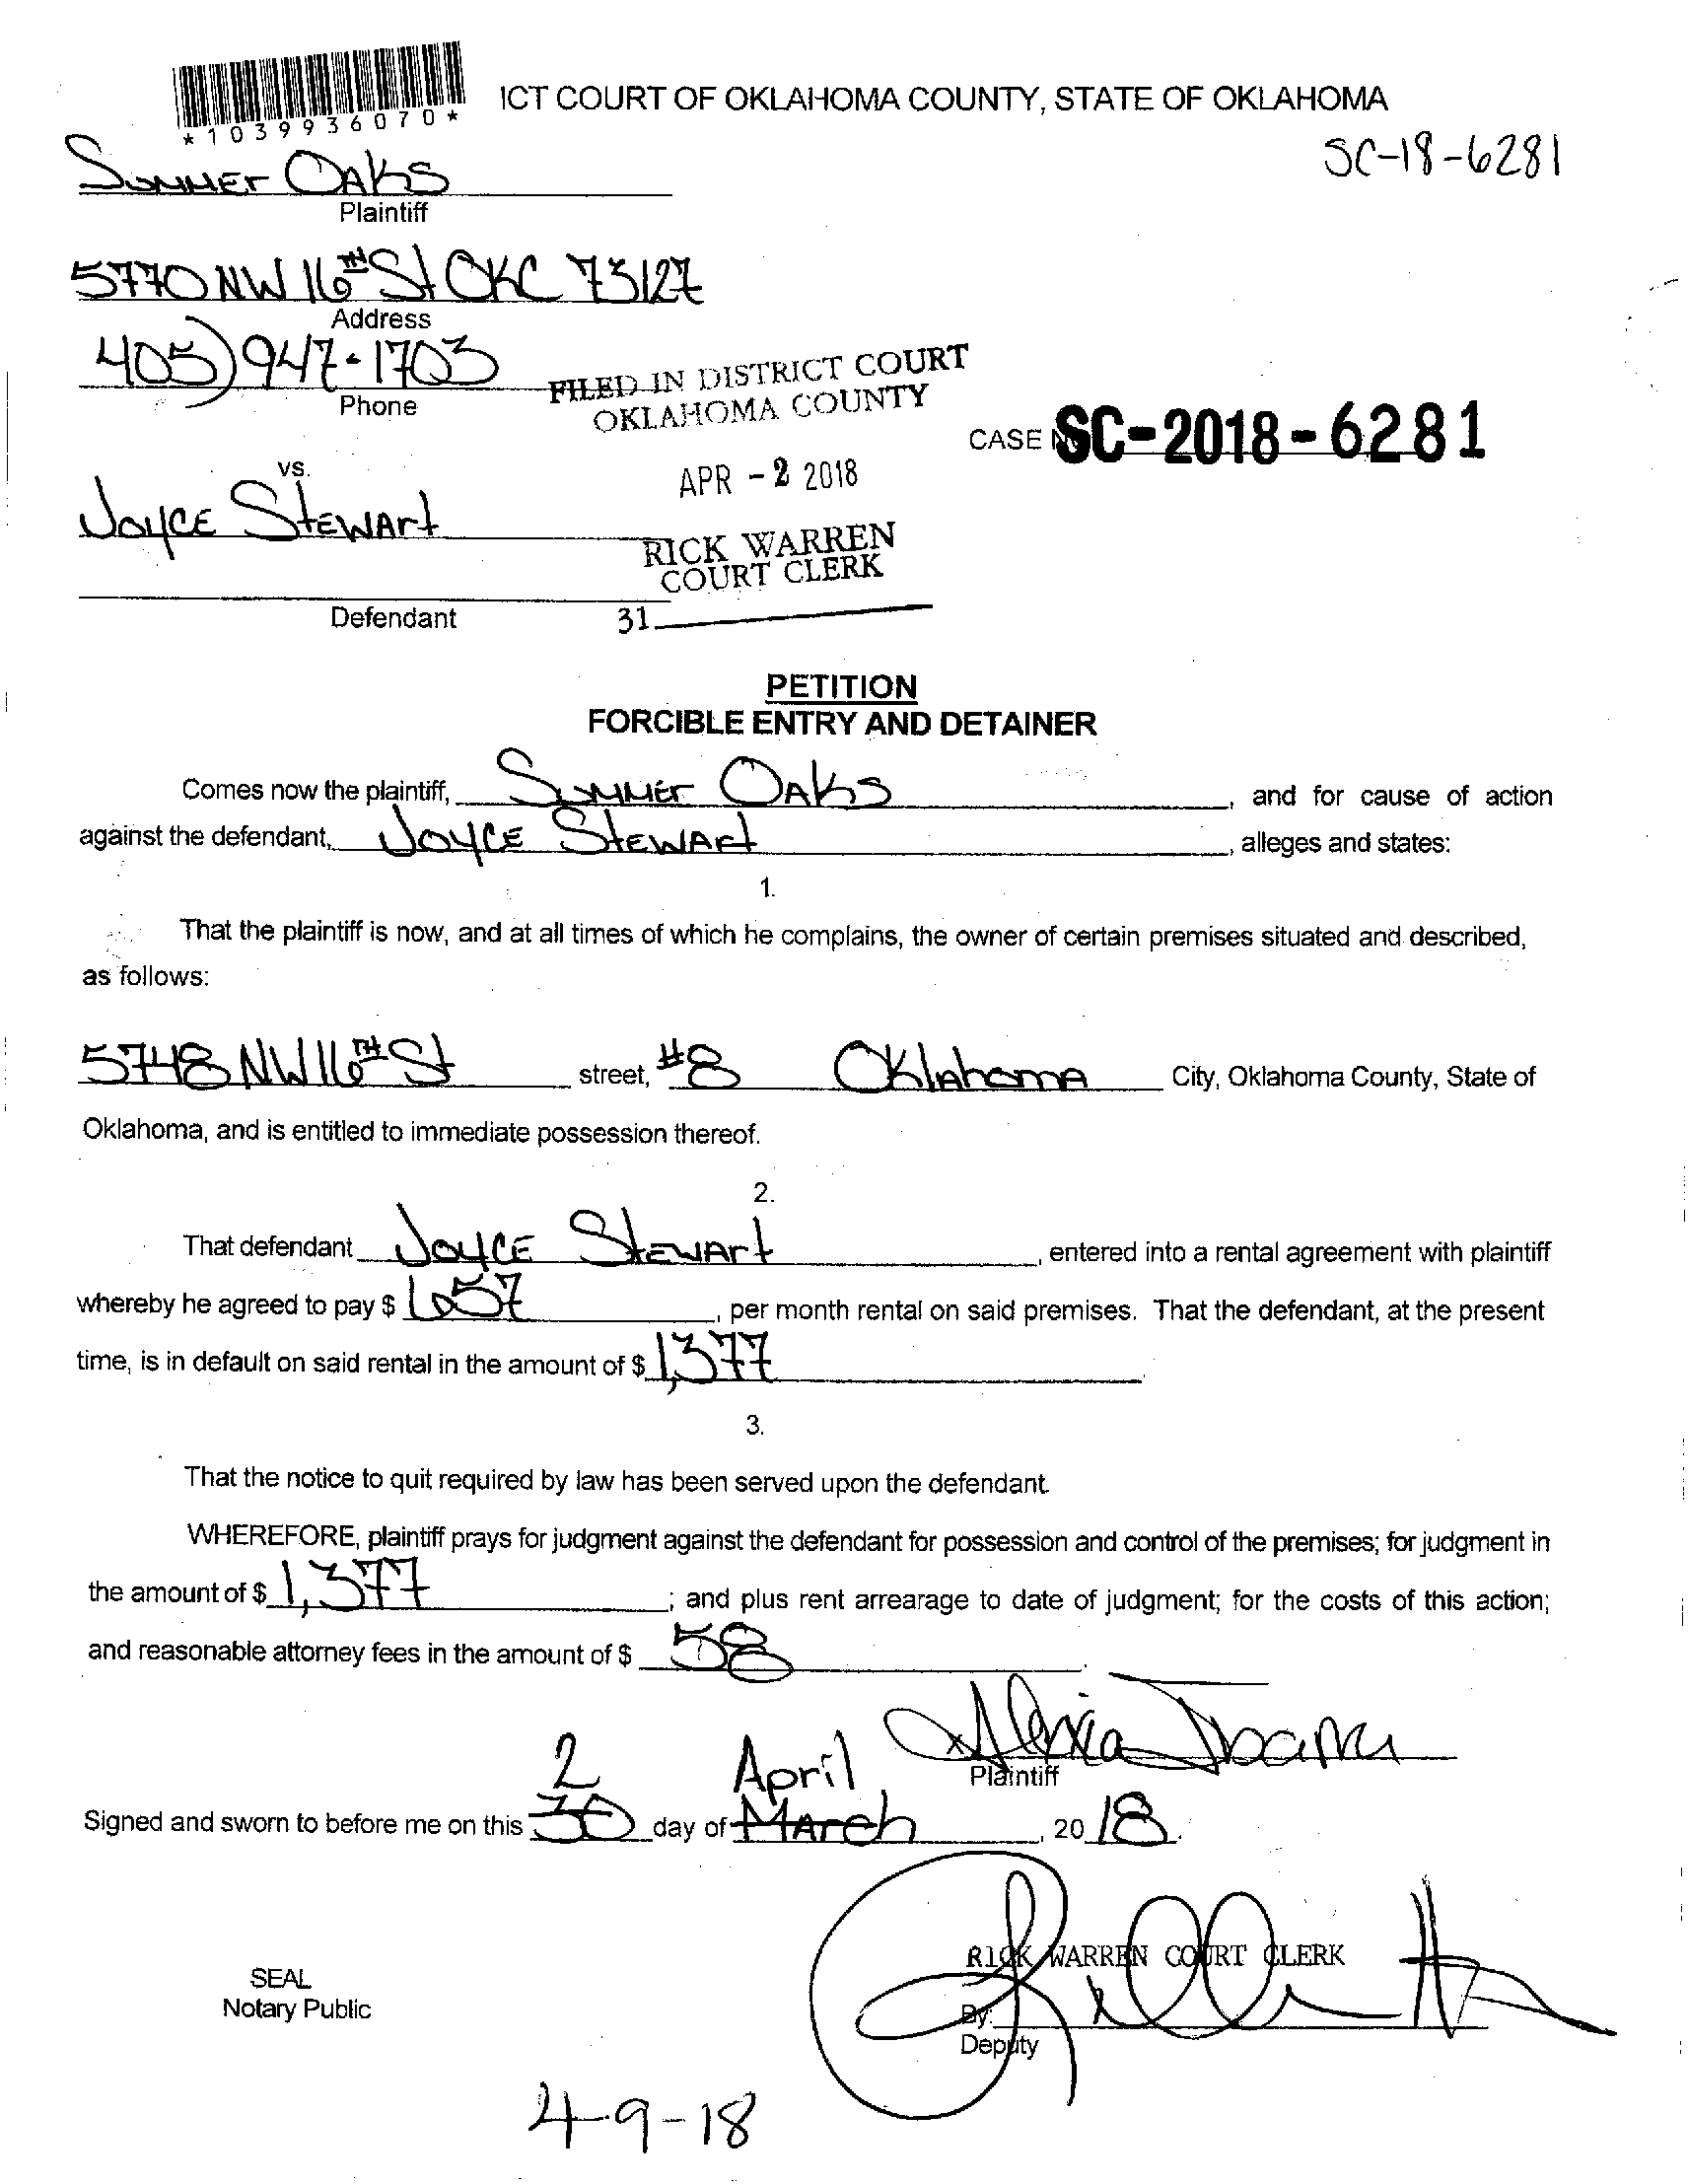 *1039936070*
ICT COURT OF OKLAHOMA COUNTY, STATE OF OKLAHOMA
SC-18-6281
Summer Oaks
Plaintiff
5770 NW 16TH St OKC 73127
Address
405) 947-1703
Phone
FILED IN DISTRICT COURT
OKLAHOMA COUNTY
CASE NO SC-2018-6281
APR - 2 2018
vs.
Joyce Stewart
RICK WARREN
COURT CLERK
Defendant
31
PETITION
FORCIBLE ENTRY AND DETAINER
Comes now the plaintiff, Summer Oaks, and for cause of action
against the defendant, Joyce Stewart, alleges and states:
1.
That the plaintiff is now, and at all times of which he complains, the owner of certain premises situated and described,
as follows:
5748 NW 16TH St street, #8 Oklahoma City, Oklahoma County, State of
Oklahoma, and is entitled to immediate possession thereof.
2.
That defendant Joyce Stewart, entered into a rental agreement with plaintiff
whereby he agreed to pay $ 657, per month rental on said premises. That the defendant, at the present
time, is in default on said rental in the amount of $ 1,377.
3.
That the notice to quit required by law has been served upon the defendant.
WHEREFORE, plaintiff prays for judgment against the defendant for possession and control of the premises; for judgment in
the amount of $ 1,377; and plus rent arrearage to date of judgment; for the costs of this action;
and reasonable attorney fees in the amount of $ 58.
Plaintiff
2 April
Signed and sworn to before me on this 30 day of March, 20 18.
RICK WARREN COURT CLERK
SEAL
Notary Public
By:
Deputy
4-9-18